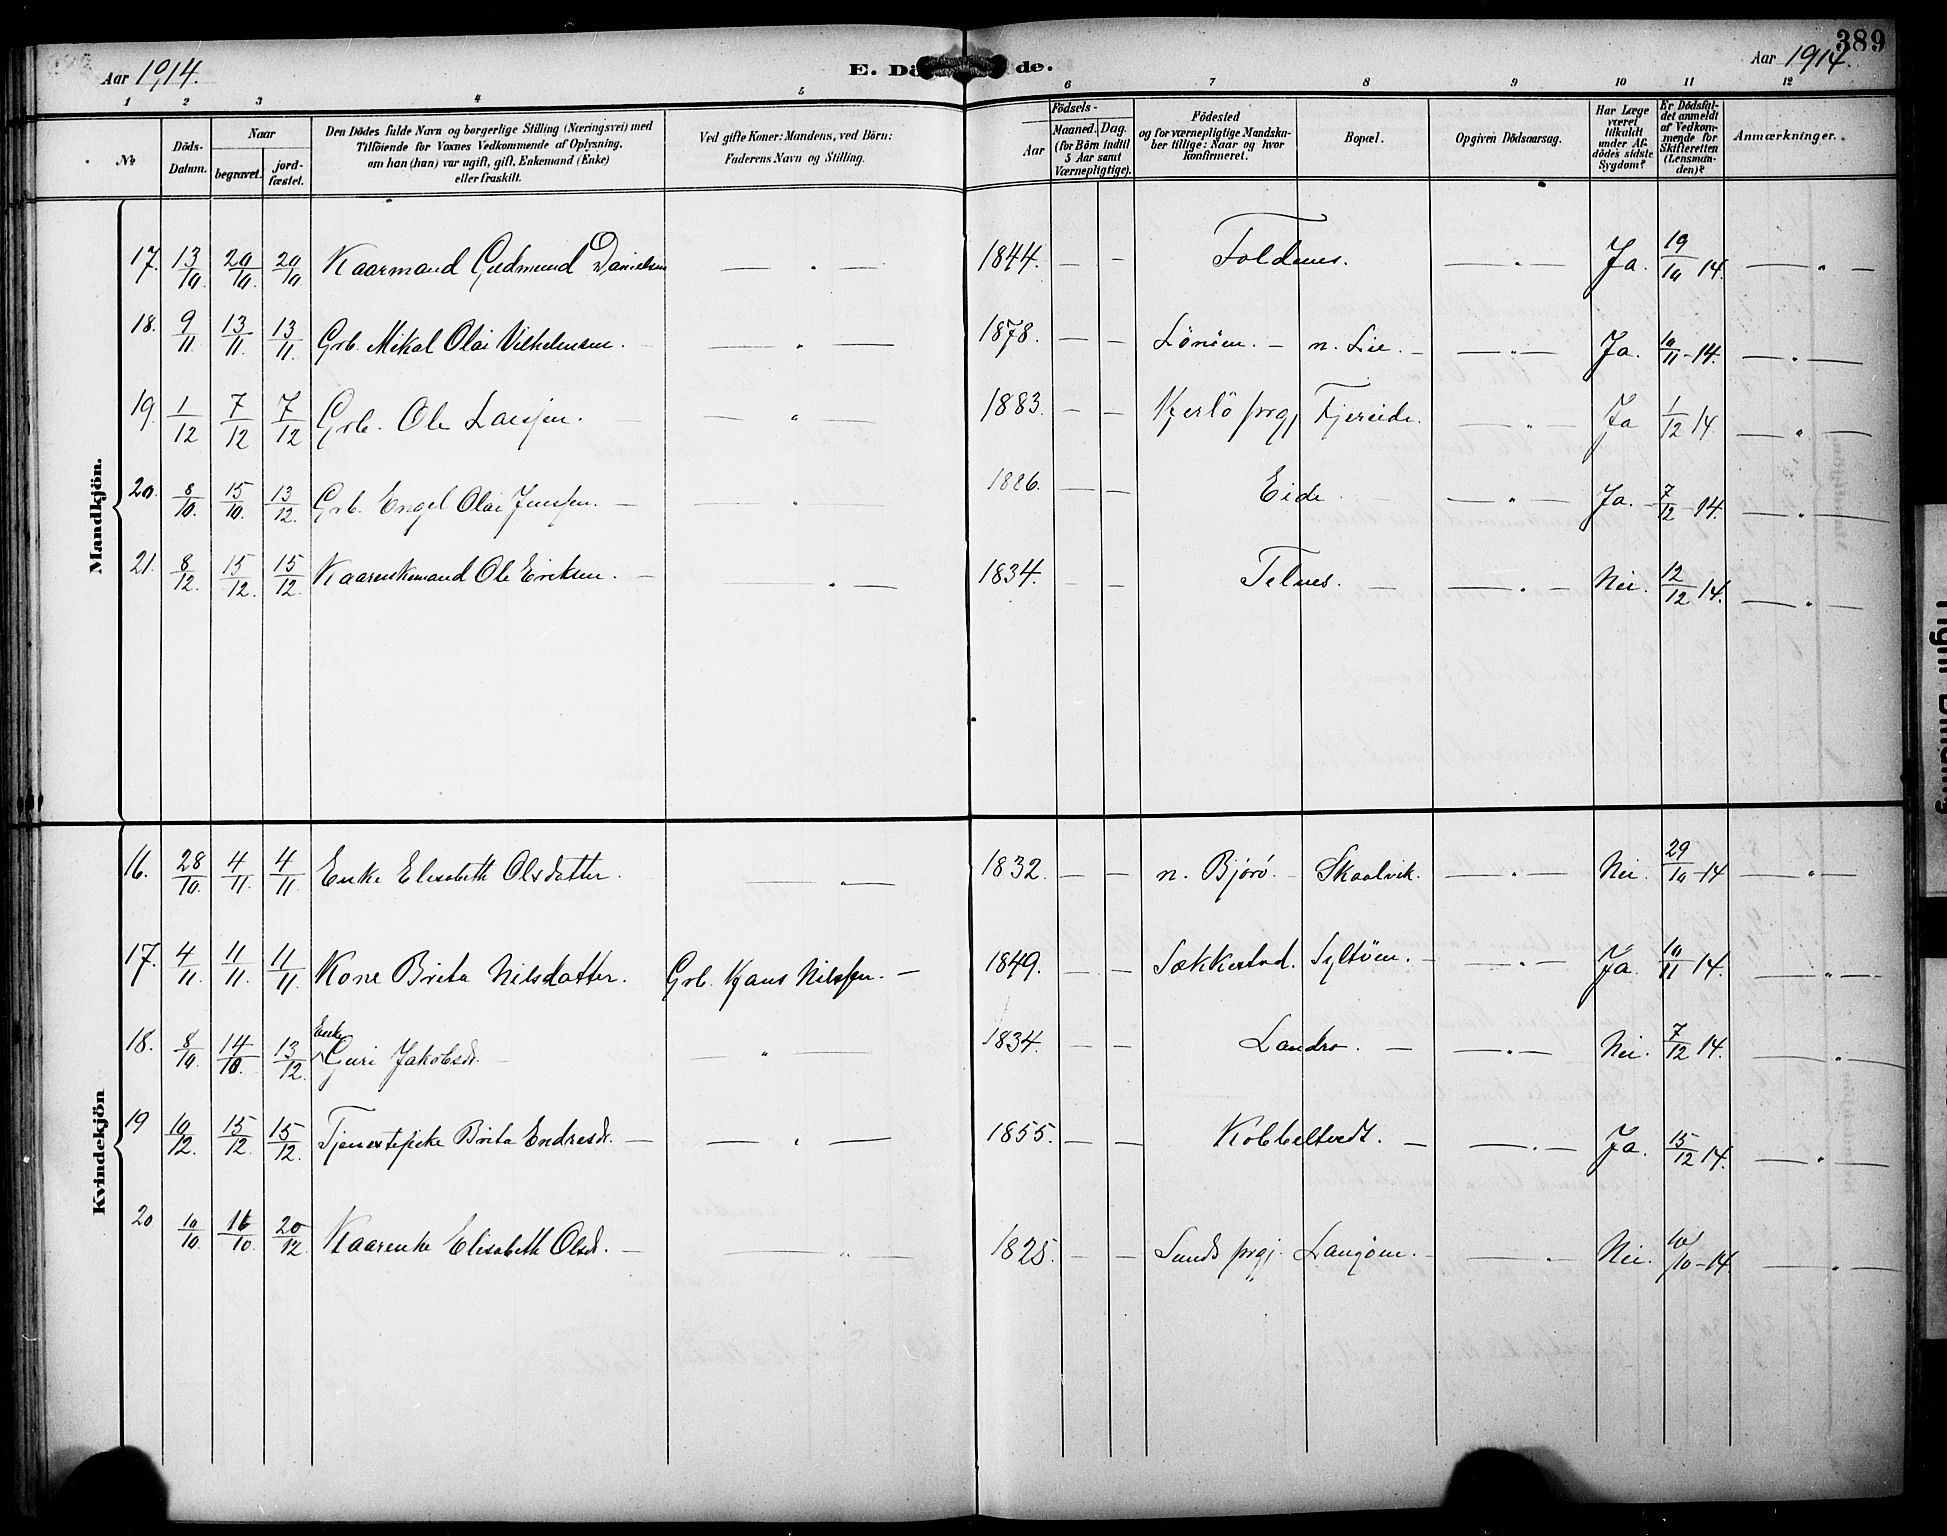 389
Aar 1914. E. Dö de. Aar 1914.
1 2 3 4 5 6 7 8 9 10 11 12
No
Döds-Datum.
Naar
begravet.
jord-fæstet.
Den Dödes fulde Navn og borgerlige Stilling (Næringsvei) med
Tilföiende for Voxnes Vedkommende af Oplysning,
om han (hun) var ugift, gift, Enkemand (Enke)
eller fraskilt.
Ved gifte Koner: Mandens, ved Börn:
Faderens Navn og Stilling.
Födsels-
Aar
Maaned. Dag.
(for Börn indtil
5 Aar samt
Værnepligtige).
Födested
og for værnepligtige Mandska-
ber tillige: Naar og hvor
konfirmeret.
Bopæl.
Opgiven Dödsaarsag.
Har Læge
været
tilkaldt
under Af-
dödes sidste
Sygdom?
Er Dödsfal-
det anmeldt
af Vedkom-
mende for
Skifteretten
(Lensman-
den)?
Anmærkninger.
Mandkjön.
17. 13/10. 20/10. 20/10 Kaarmand Gudmund Danielsen — " — 1844. — — Foldnes. — " — Ja. 19/10 14. — " —
18. 9/11. 13/11. 13/11. Grb. Mikal Olai Vilhelmsen. — " — 1878. — — Lönöen. — n. Lie. — — " — Ja. 10/11 - 14. — " —
19. 1/12 7/12 7/12 Grb. Ole Larssen. — " — 1883. — — Kjerlö prgj Fjereide. — " — Ja 1/12 14. — " —
20. 8/10. 15/10. 13/12. Grb. Engel Olai Jenssen. — — " — 1886. — — Eide — " — Ja. 7/12 - 14. — " —
21. 8/12. 15/12. 15/12. Kaarenkemand Ole Eriksen. — — " — 1834. — — Telnes. — — " — Nei. 12/12 14. — " —
Kvindekjön
16. 28/10. 4/11. 4/11. Enke Elisabeth Olsdatter. — " — 1832. — — n. Bjorö. — Skaalvik. — " — Nei. 29/10 - 14 — " —
17. 4/11. 11/11. 11/11. Kone Brita Nilsdatter. Grb. Hans Nilssen. — 1849. — — Sækkestad. Syltöen. — — " — Ja. 10/11 14. — " —
18. 8/10. 14/10. 13/12. Enke Guri Jakobsdr. — — " — 1834. — — Landro. — — " — Nei. 7/12 14. — " —
19 10/12. 15/12. 15/12. Tjenestepike Brita Endresdr. — — " — 1855. — — Kobbeltvedt. — — " — Ja. 15/12 14. — " —
20 10/10. 16/10. 20/12. Kaarenke Elisabeth Olsdr. — — " — 1825. — — Sunds prgj. Langöen. — — " — Nei. 10/10 - 14. — " —